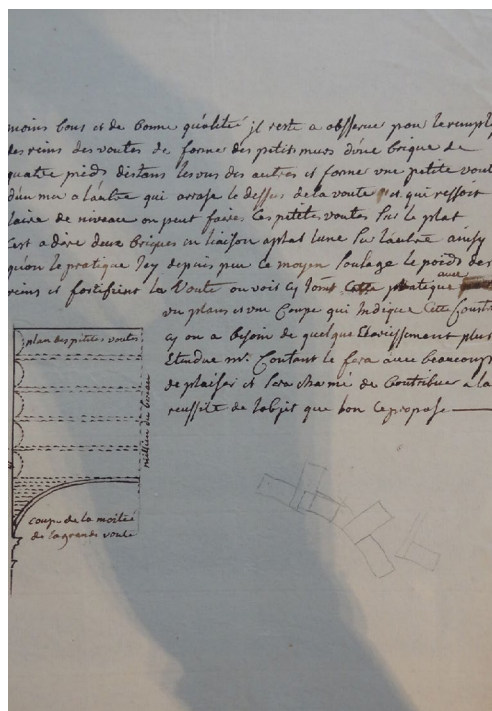 moins bons et de bonne qualité jl reste a observer pour le rempl
des reins des voutes de former des petits murs d'une brique de
quatre pieds distans les uns des autres et former une petite vout
d'un mur a l'autre qui arrase le dessus de la voute et qui
laire de niveau on peut faire ces petites voutes sur le plat
cest a dire deux briques en liaison aplat lune sur lautre ainsy
qu'on le pratique Jcy depuis peu ce moyen soulage le poids des
reins et fortifient la voute on voit cy joint pratique avec
un plan et une coupe qui indique cette
sy on a besoin de quelque Eclaircissement plus
Etendue mr. Contant le fera avec beaucoup
de plaisir et sera charmé de Contribuer a la
reussite de lobjet que bon ce propose
plan des petites voutes
millieu du berceau
coupe de la moitié
de la grande voute